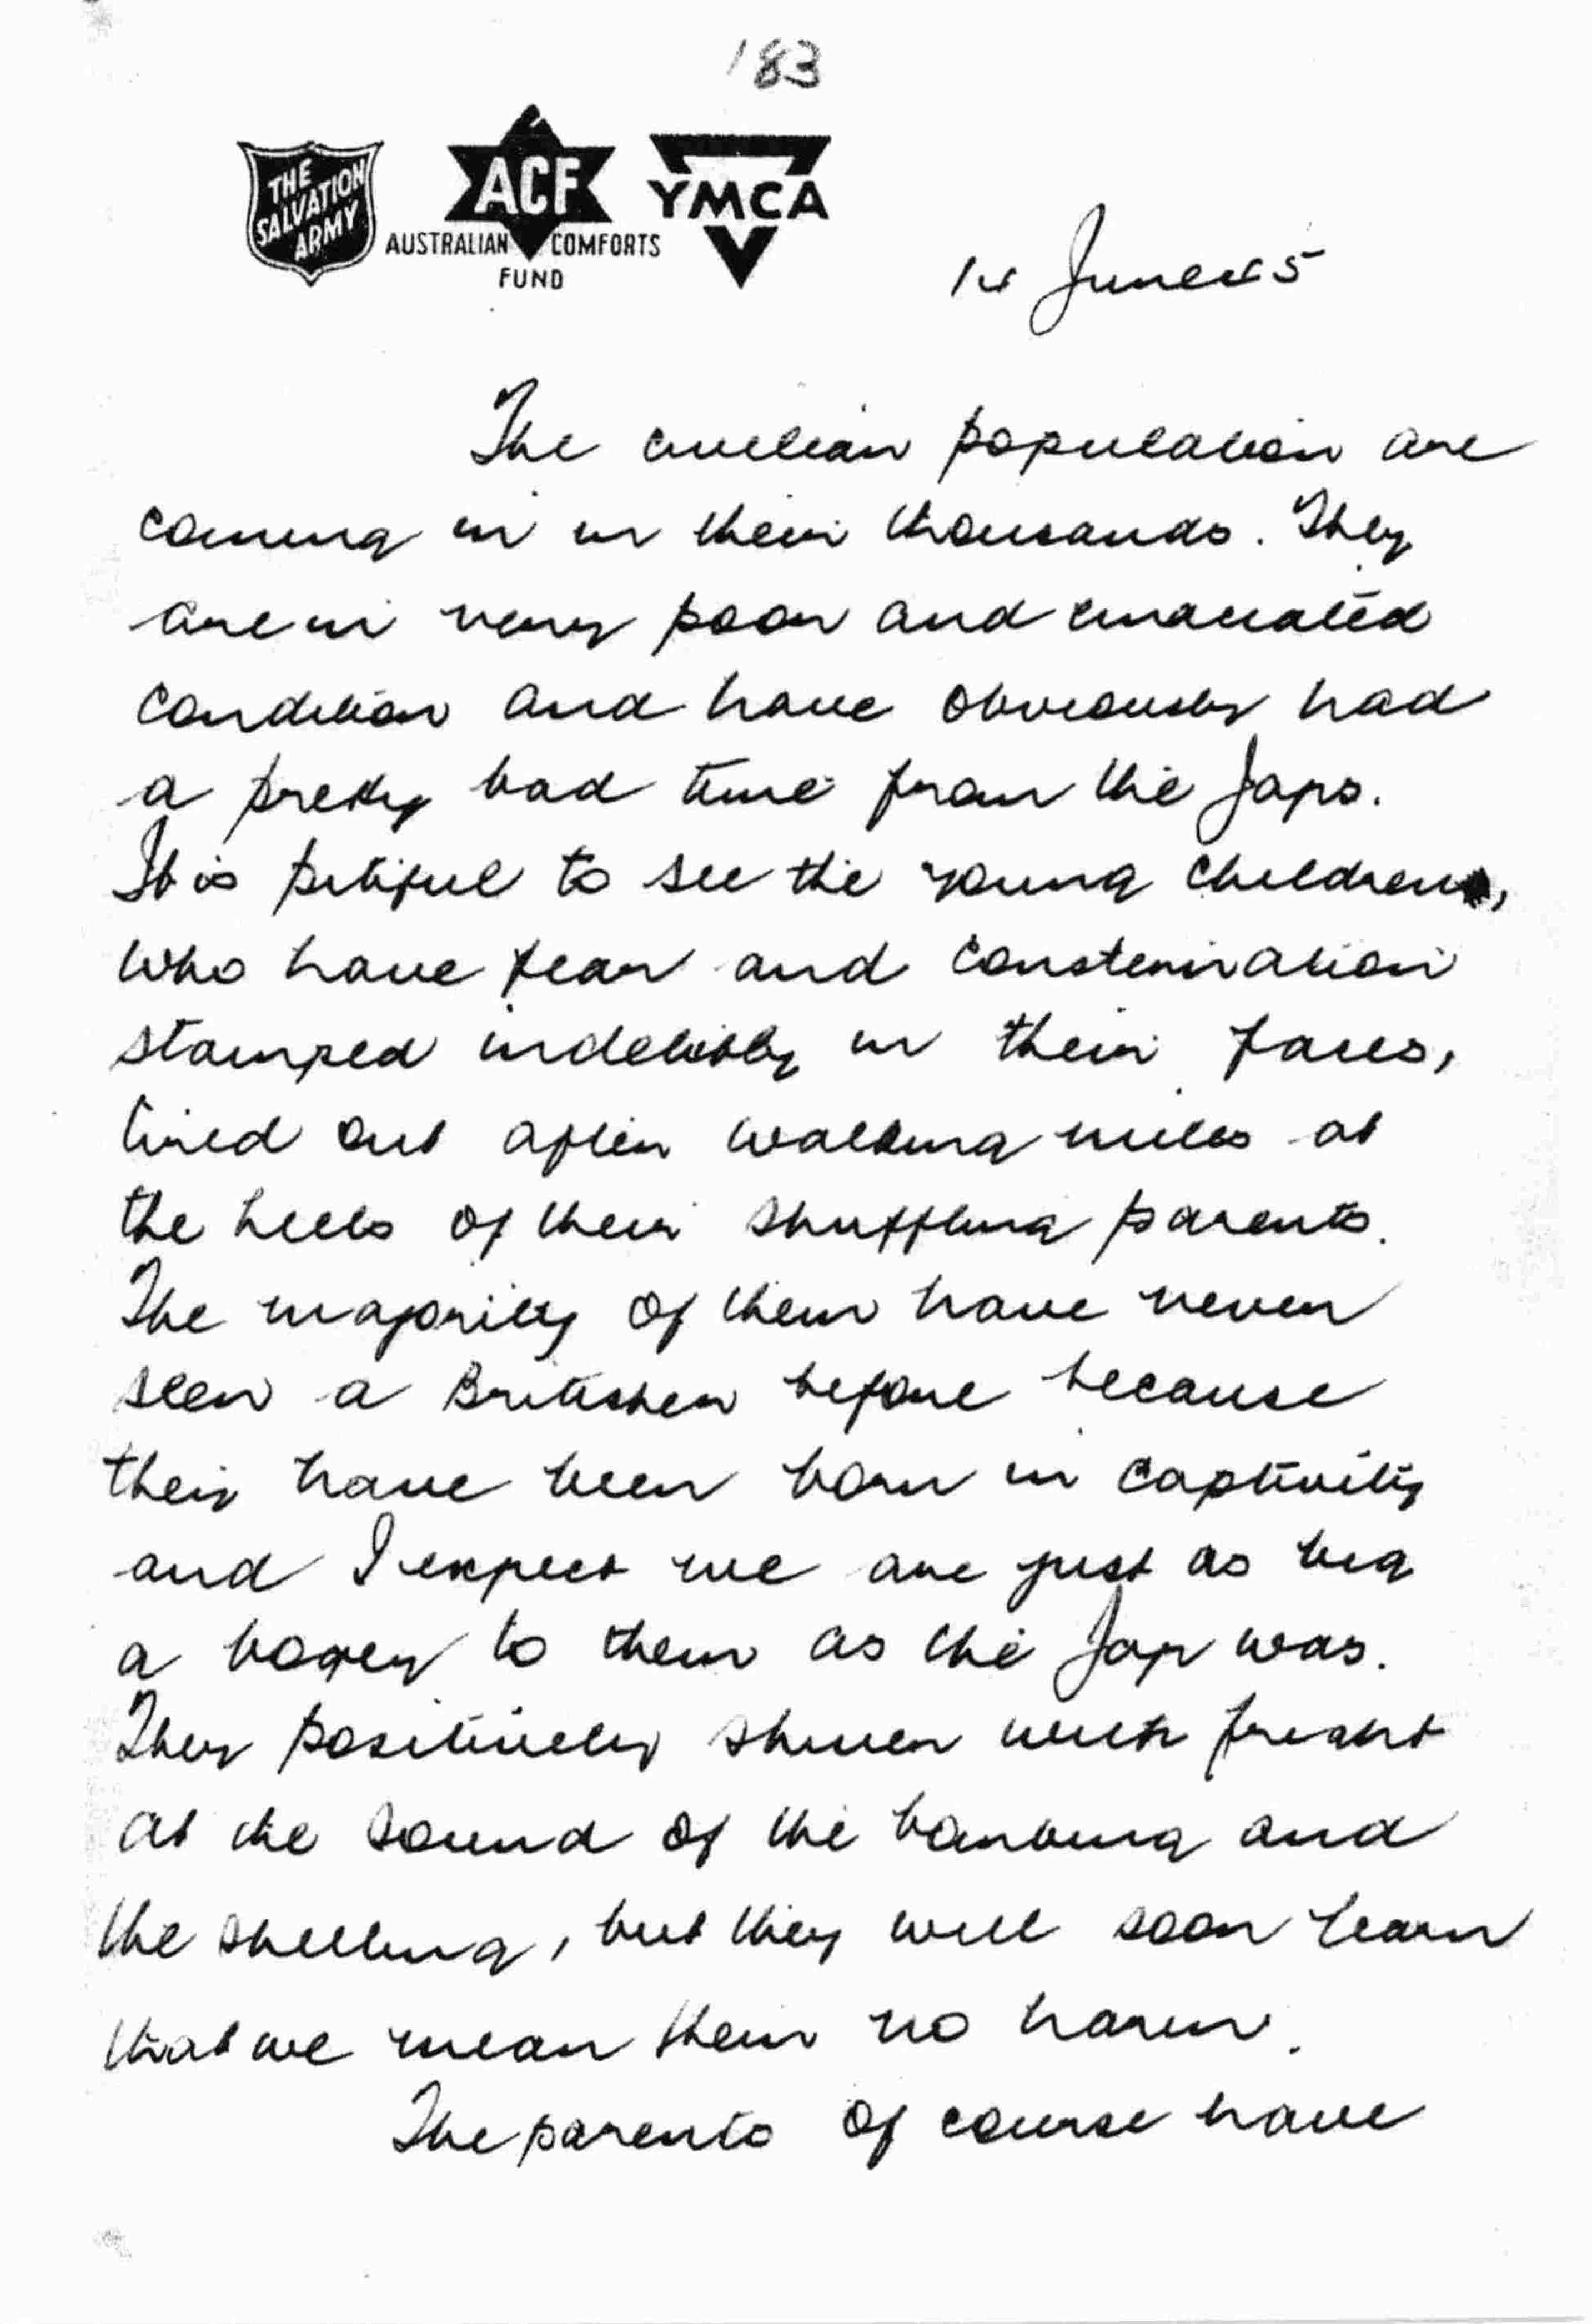 183
THE
SALVATION
ARMY
ACF
AUSTRALIAN COMFORTS
FUND
YMCA
14 June 45
The civilian population are
coming in in their thousands. They
are in very poor and emaciated
condition and have obviously had
a pretty bad time from the Japs.
It is pitiful to see the young children,
who have fear and consternation
stamped indelibly in their faces,
tired out after walking miles at
the heels of their shuffling parents.
The majority of them have never
seen a Britisher before because
they have been born in captivity
and I expect we are just as big
a bogey to them as the Jap was.
They positively shiver with fright
at the sound of the bombing and
the shelling, but they will soon learn
that we mean them no harm.
The parents of course have